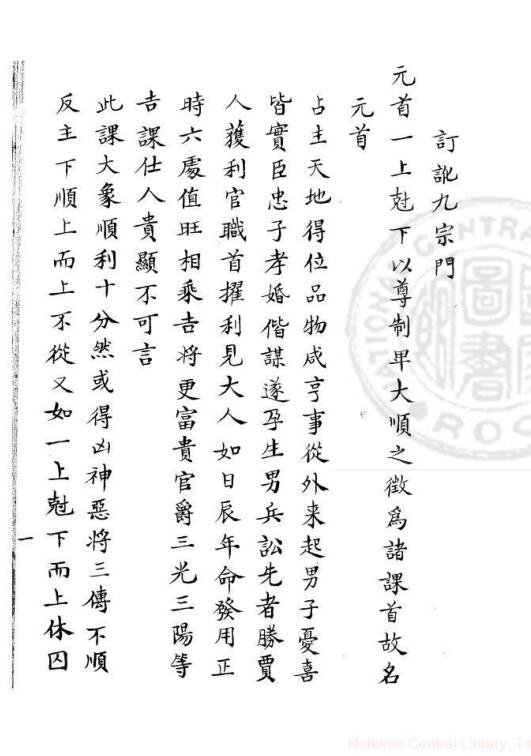 訂訛九宗門
元首一上尅下以尊制卑大順之徵爲諸課首故名
元首
占主天地得位品物咸亨事從外来起男子憂喜
皆實臣忠子孝婚偕謀遂孕生男兵訟先者勝賈
人獲利官職首擢利見大人如日辰年命發用正
時六處值旺相乘吉將更富貴官爵三光三陽等
吉課仕人貴顯不可言
此課大象順利十分然或得凶神惡將三傳不順
反主下順上而上不從又如一上尅下而上休囚
一
National Central Library, Ta